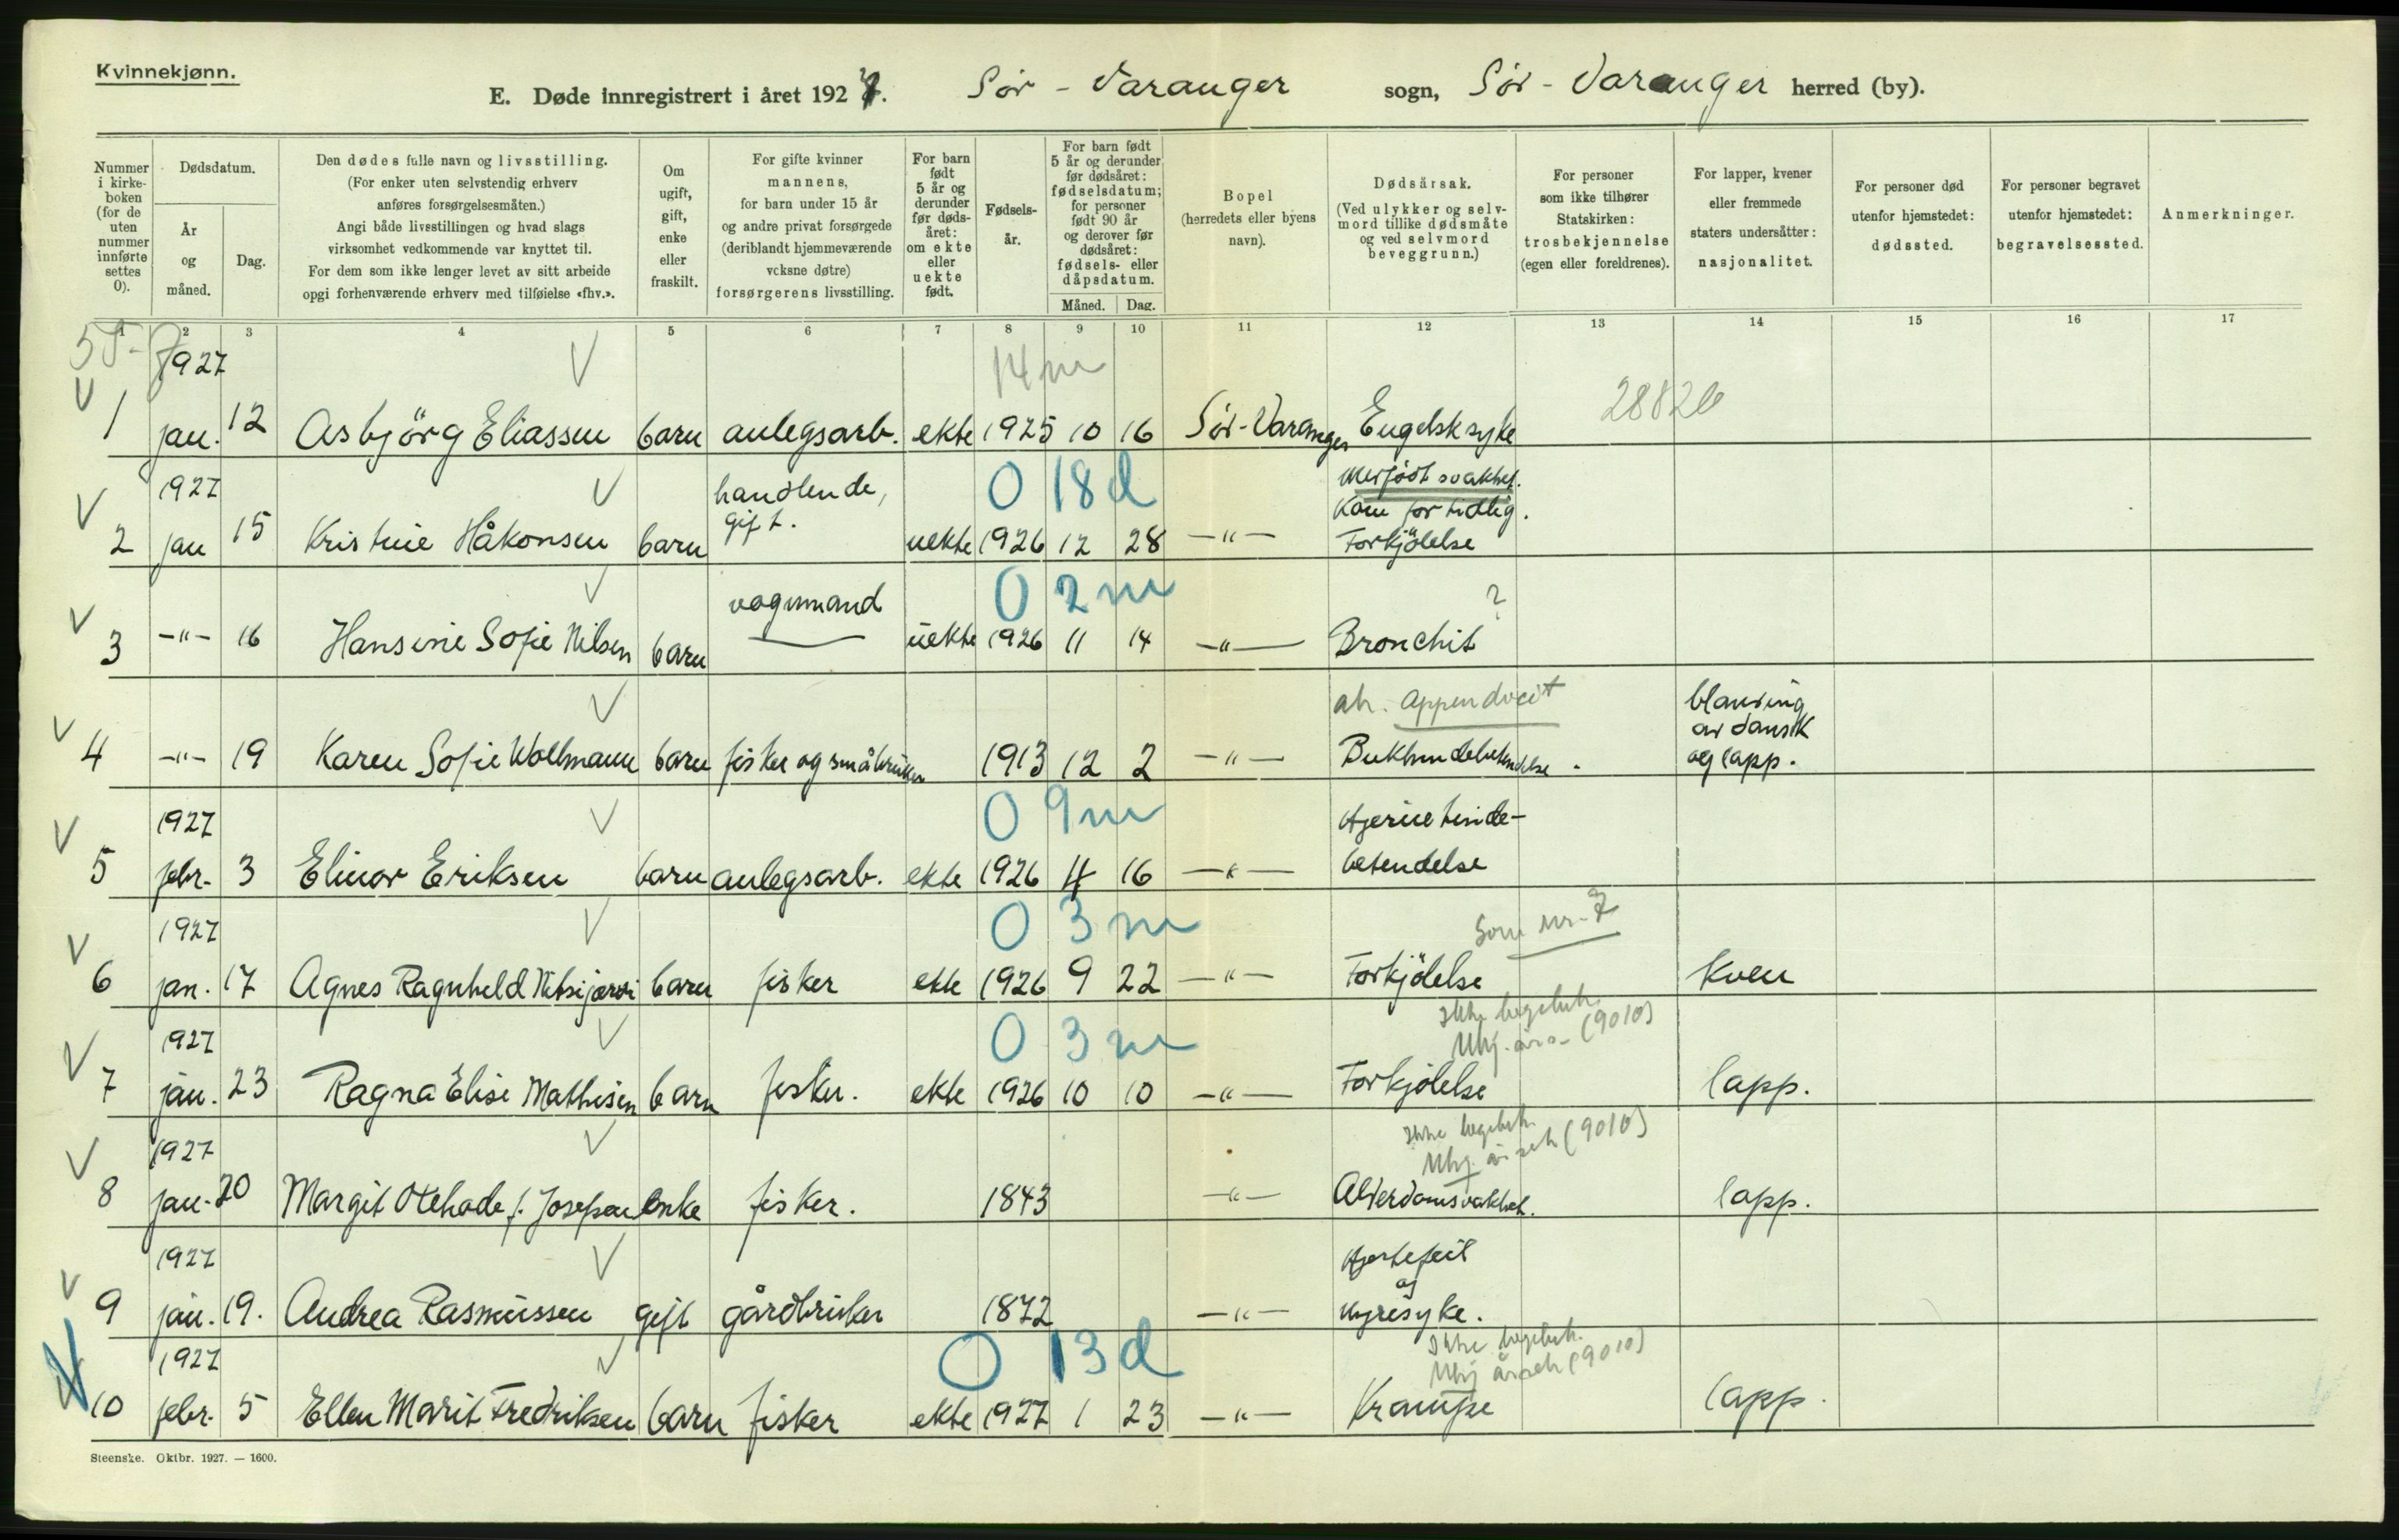 Kvinnekjønn.
E. Døde innregistrert i året 1927. Sør-Varanger sogn, Sør-Varanger herred (by).
Nummer i kirke- boken (for de uten nummer innførte settes 0).
Dødsdatum.
År og måned.
Dag.
Den dødes fulle navn og livsstilling.
(For enker uten selvstendig erhverv
anføres forsørgelsesmåten.)
Angi både livsstillingen og hvad slags
virksomhet vedkommende var knyttet til.
For dem som ikke lenger levet av sitt arbeide
opgi forhenværende erhverv med tilføielse «fhv.».
Om ugift, gift, enke eller fraskilt.
For gifte kvinner
mannens,
for barn under 15 år
og andre privat forsørgede
(deriblandt hjemmeværende
voksne døtre)
forsørgerens livsstilling.
For barn født 5 år og derunder før døds- året: om ekte eller uekte født.
Fødsels- år.
For barn født
5 år og derunder
før dødsåret:
fødselsdatum;
for personer
født 90 år
og derover før
dødsåret:
fødsels- eller
dåpsdatum.
Måned. Dag.
Bopel
(herredets eller byens
navn).
Dødsårsak.
(Ved ulykker og selv-
mord tillike dødsmåte
og ved selvmord
beveggrunn.)
For personer
som ikke tilhører
Statskirken:
trosbekjennelse
(egen eller foreldrenes).
For lapper, kvener
eller fremmede
staters undersåtter:
nasjonalitet.
For personer død
utenfor hjemstedet:
dødssted.
For personer begravet
utenfor hjemstedet:
begravelsessted.
Anmerkninger.
1 2 3 4 5 6 7 8 9 10 11 12 13 14 15 16 17
1927 14 m
28826
1 jan. 12 Asbjörg Eliassen barn anlegsarb. ekte 1925 10 16 Sør-Varanger Engelsk syke
1927 handlende, 0 18 d Medfödt svakhet.
gift. Kom for tidlig.
2 jan 15 Kristine Håkonsen barn uekte 1926 12 28 -"- Forkjölelse
vognmand 0 2 m ?
3 -"- 16 Hansine Sofie Nilsen barn uekte 1926 11 14 -"- Bronchit
ak. appendicit blanding
av dansk
4 -"- 19 Karen Sofie Wollmann barn fisker og småbruker 1913 12 2 -"- Bukhindebetendelse. og lapp.
1927 0 9 m Hjernehinde-
5 febr. 3 Elinor Eriksen barn anlegsarb. ekte 1926 4 16 -"- betendelse
1927 0 3 m Som nr. 7
6 jan. 17 Agnes Ragnhild barn fisker ekte 1926 9 22 -"- Forkjölelse Kven
1927 0 3 m Ikke legebeh.
(9010)
7 jan. 23 Ragna Elise Mathisen barn fisker. ekte 1926 10 10 -"- Forkjölelse lapp.
1927 Ikke legebeh.
(9010)
8 jan. 20 Margit f. Josefsen enke fisker. 1843 -"- Alderdomsvakhet. lapp.
1927 Hjertefeil
og
9 jan. 19. Andrea Rasmussen gift gårdbruker 1872 -"- nyresyke.
1927 0 13 d Ikke legebeh.
(9010)
10 febr. 5 Ellen Marit Fredriksen barn fisker ekte 1927 1 23 -"- Krampe lapp.
Steenske. Oktbr. 1927. — 1600.